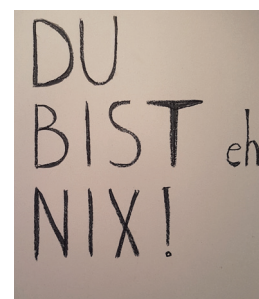 DU
BIST eh
NIX!